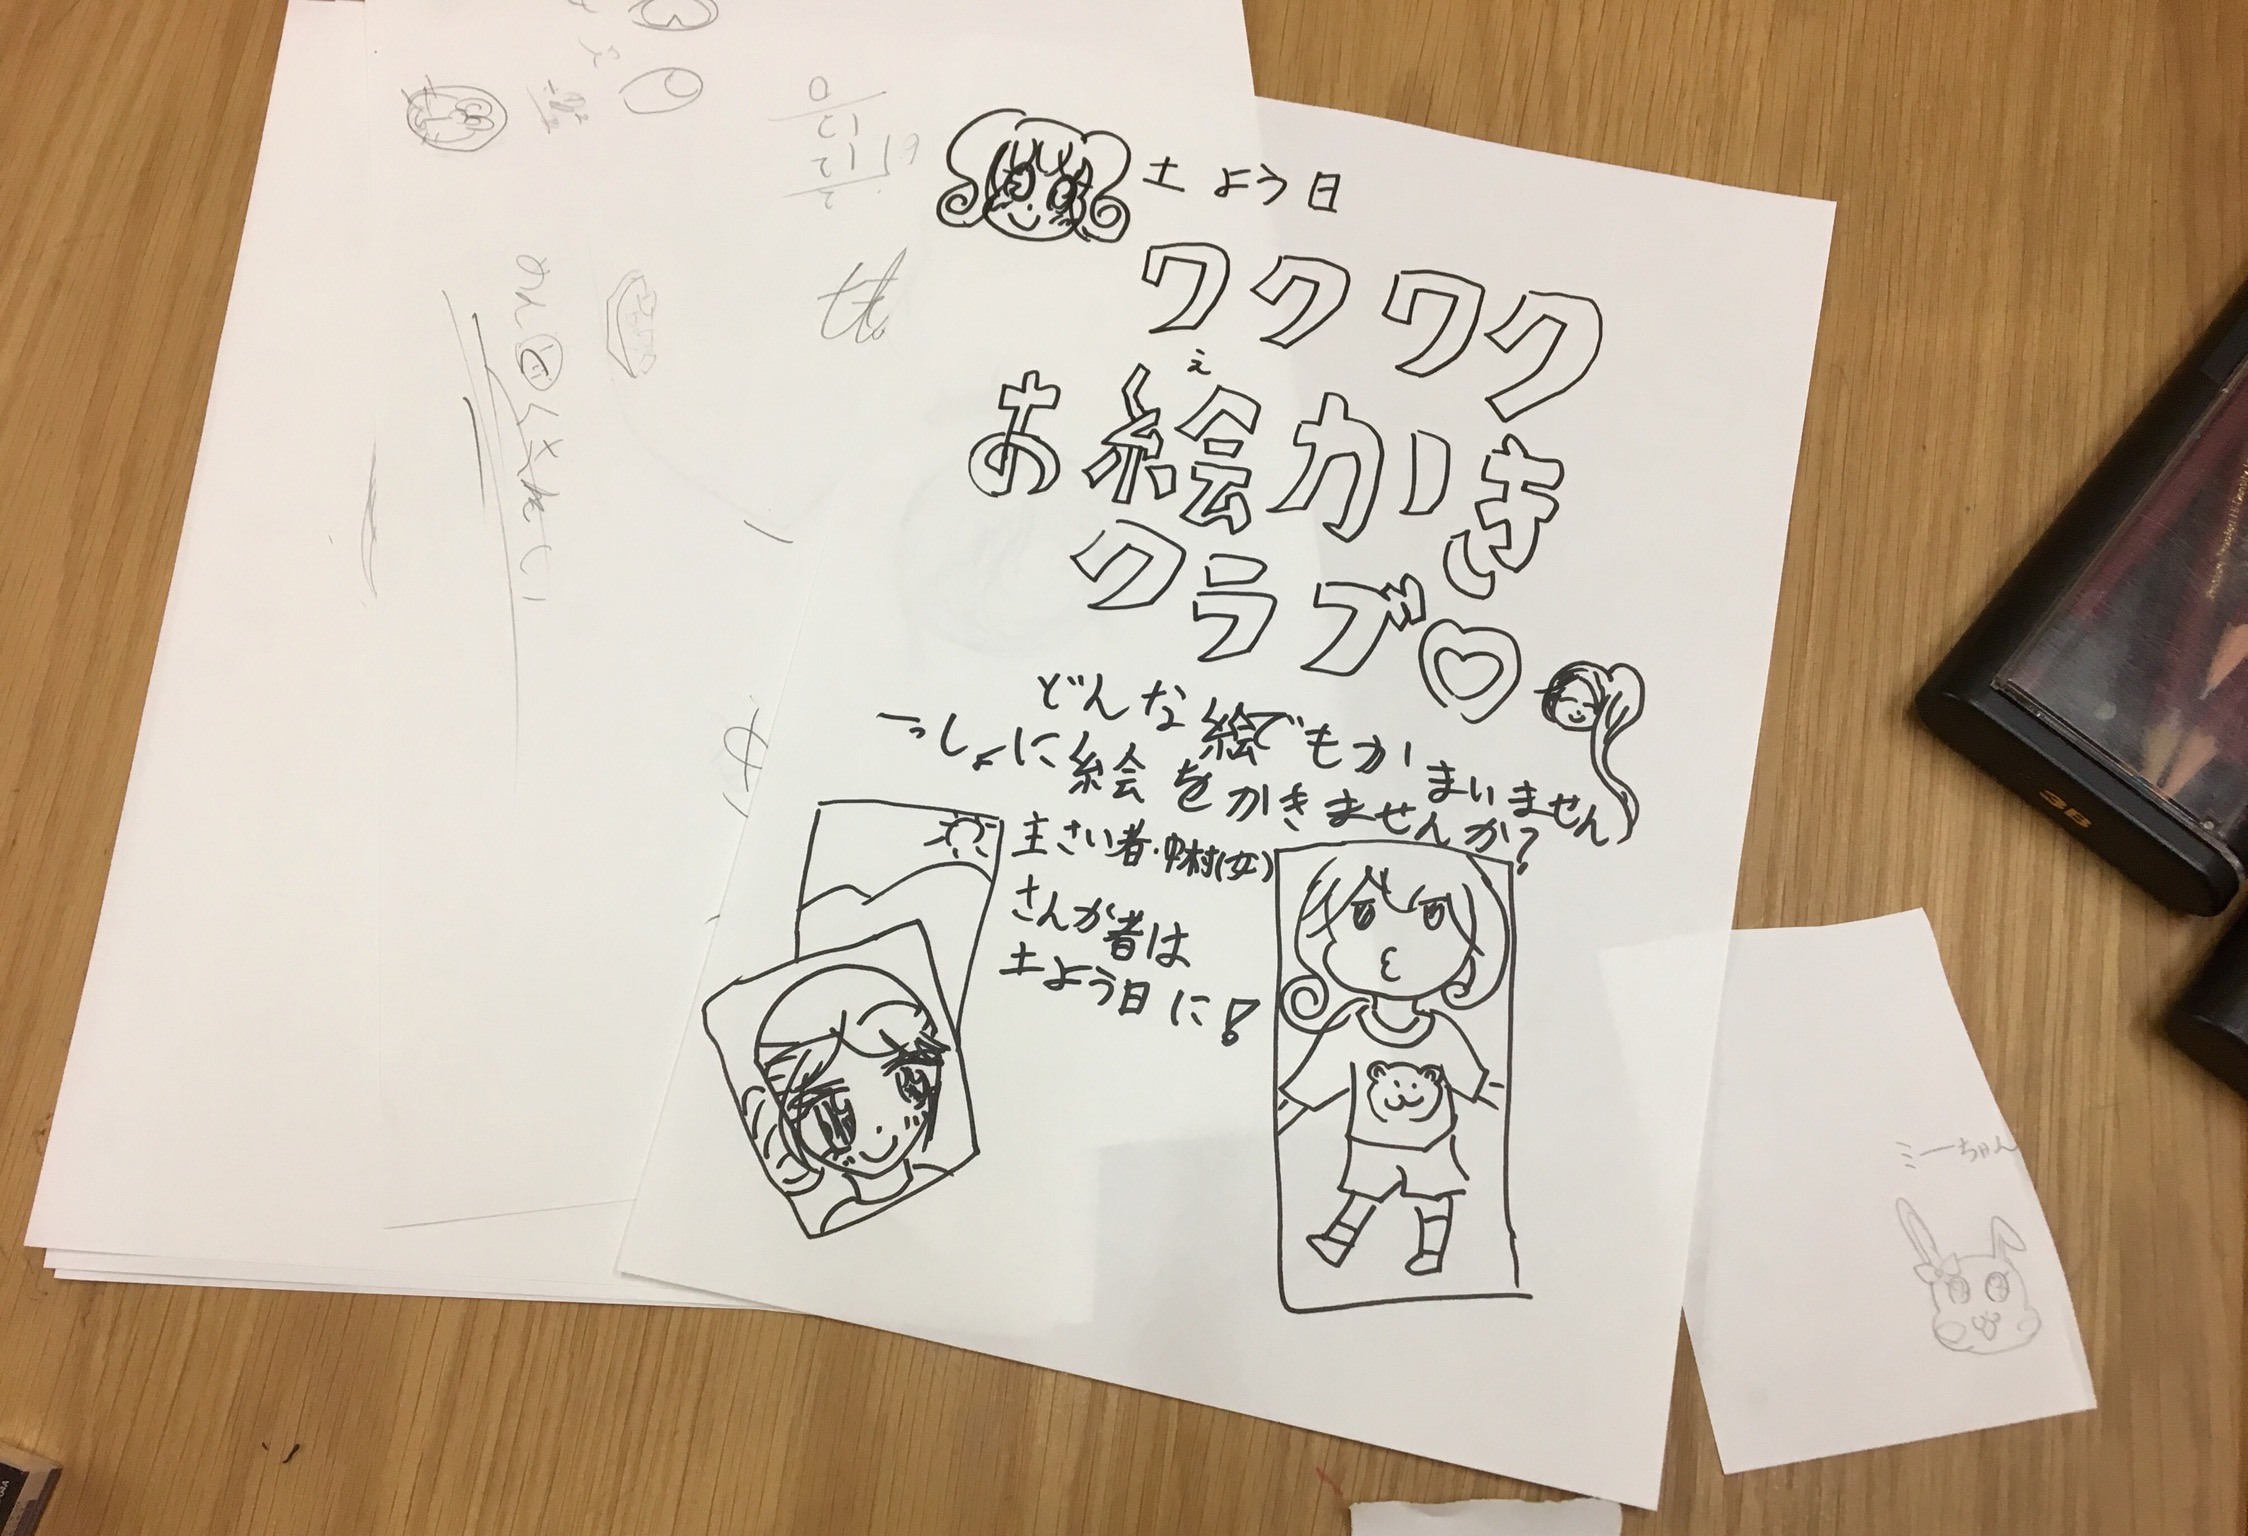 土よう日
ワクワク
え
お絵かき
クラブ♡
どんな絵でもかまいません
一っしょに絵をかきませんか?
主さい者・中村(女)
さんか者は
土よう日に!
ミーちゃん
3B